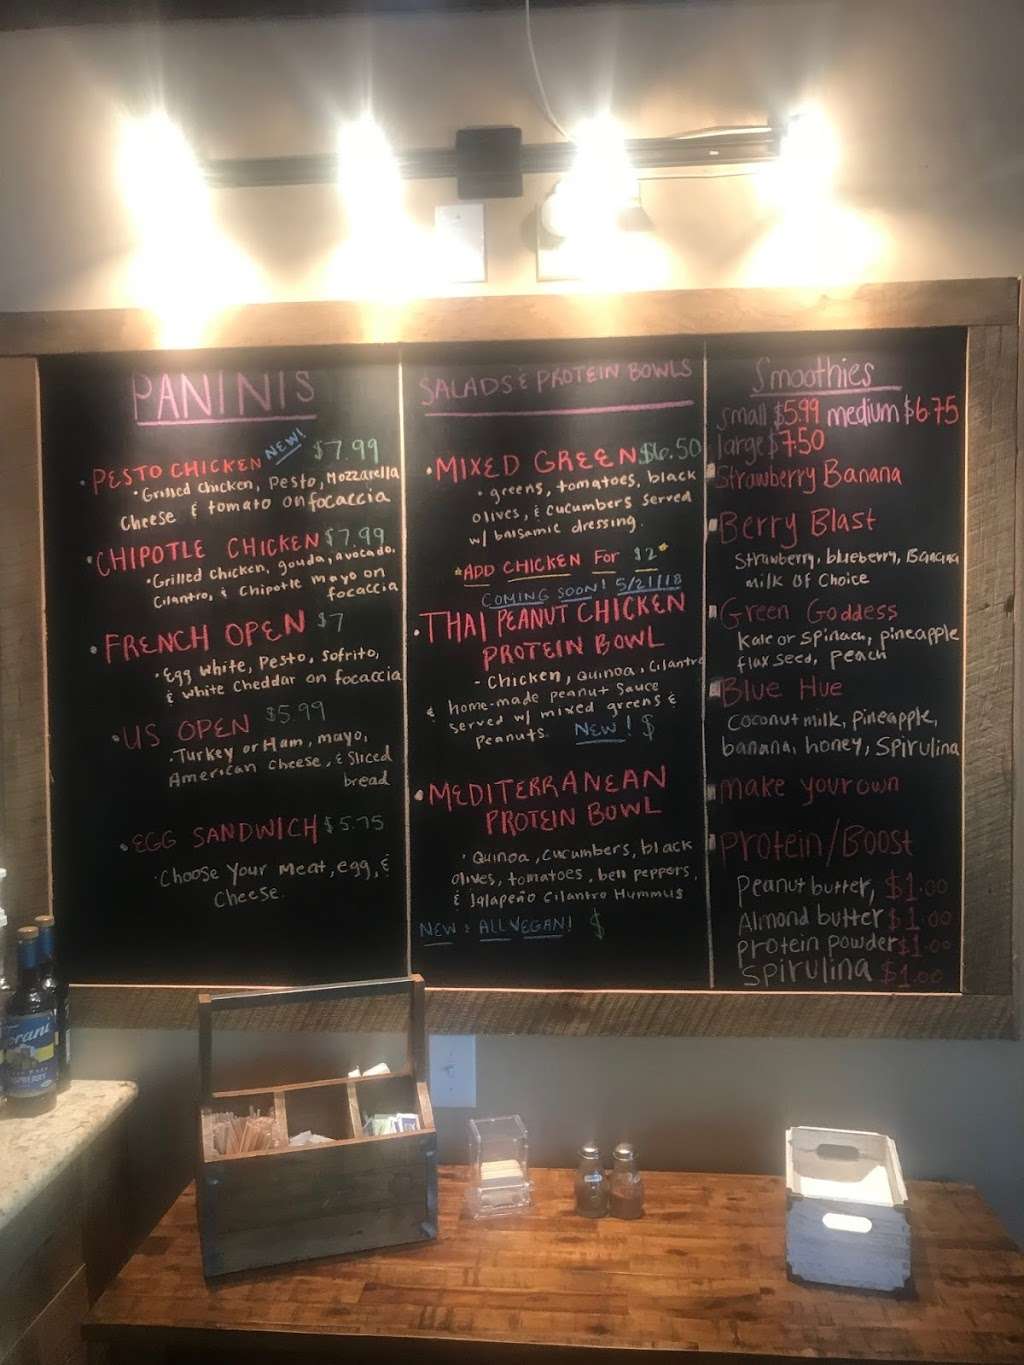 PANINIS
NEW!
PESTO CHICKEN $7.99
• Grilled Chicken, Pesto, Mozzarella
Cheese & tomato on focaccia
CHIPOTLE CHICKEN $7.99
• Grilled chicken, gouda, avocado,
Cilantro, & Chipotle mayo on
focaccia
FRENCH OPEN $7
• Egg White, Pesto, Sofrito,
& White Cheddar on focaccia
US OPEN $5.99
• Turkey or Ham, mayo,
American Cheese, & Sliced
bread
EGG SANDWICH $5.75
• Choose Your meat, egg, &
Cheese.
SALADS & PROTEIN BOWLS
• MIXED GREEN $6.50
• greens, tomatoes, black
olives, & cucumbers served
w/ balsamic dressing.
*ADD CHICKEN For $2*
COMING SOON! 5/21/18
• THAI PEANUT CHICKEN
PROTEIN BOWL
- Chicken, Quinoa, Cilantro
& home-made peanut sauce
served w/ mixed greens &
Peanuts. NEW! $
• MEDITERRANEAN
PROTEIN BOWL
• Quinoa, cucumbers, black
olives, tomatoes, bell peppers,
& Jalapeño Cilantro Hummus
NEW & ALL VEGAN! $
Smoothies
small $5.99 medium $6.75
large $7.50
Strawberry Banana
Berry Blast
Strawberry, blueberry, Banana
milk Of Choice
Green Goddess
Kale or Spinach, pineapple
flax seed, peach
Blue Hue
Coconut milk, Pineapple,
banana, honey, Spirulina
make your own
Protein/Boost
Peanut butter, $1.00
Almond butter $1.00
protein powder $1.00
Spirulina $1.00